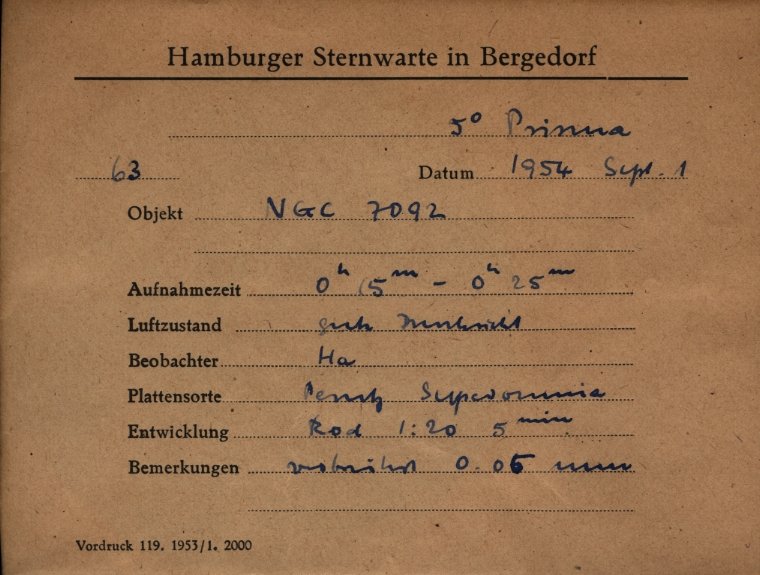 Hamburger Sternwarte in Bergedorf
5° Prisma
63 Datum 1954 Sept. 1
Objekt NGC 7092
Aufnahmezeit 0ʰ 15ᵐ - 0ʰ 25ᵐ
Luftzustand gute Durchsicht
Beobachter Ha
Plattensorte Perutz Superomnia
Entwicklung Rod 1:20 5 min
Bemerkungen verbreitert 0.06 mm
Vordruck 119. 1953/1. 2000